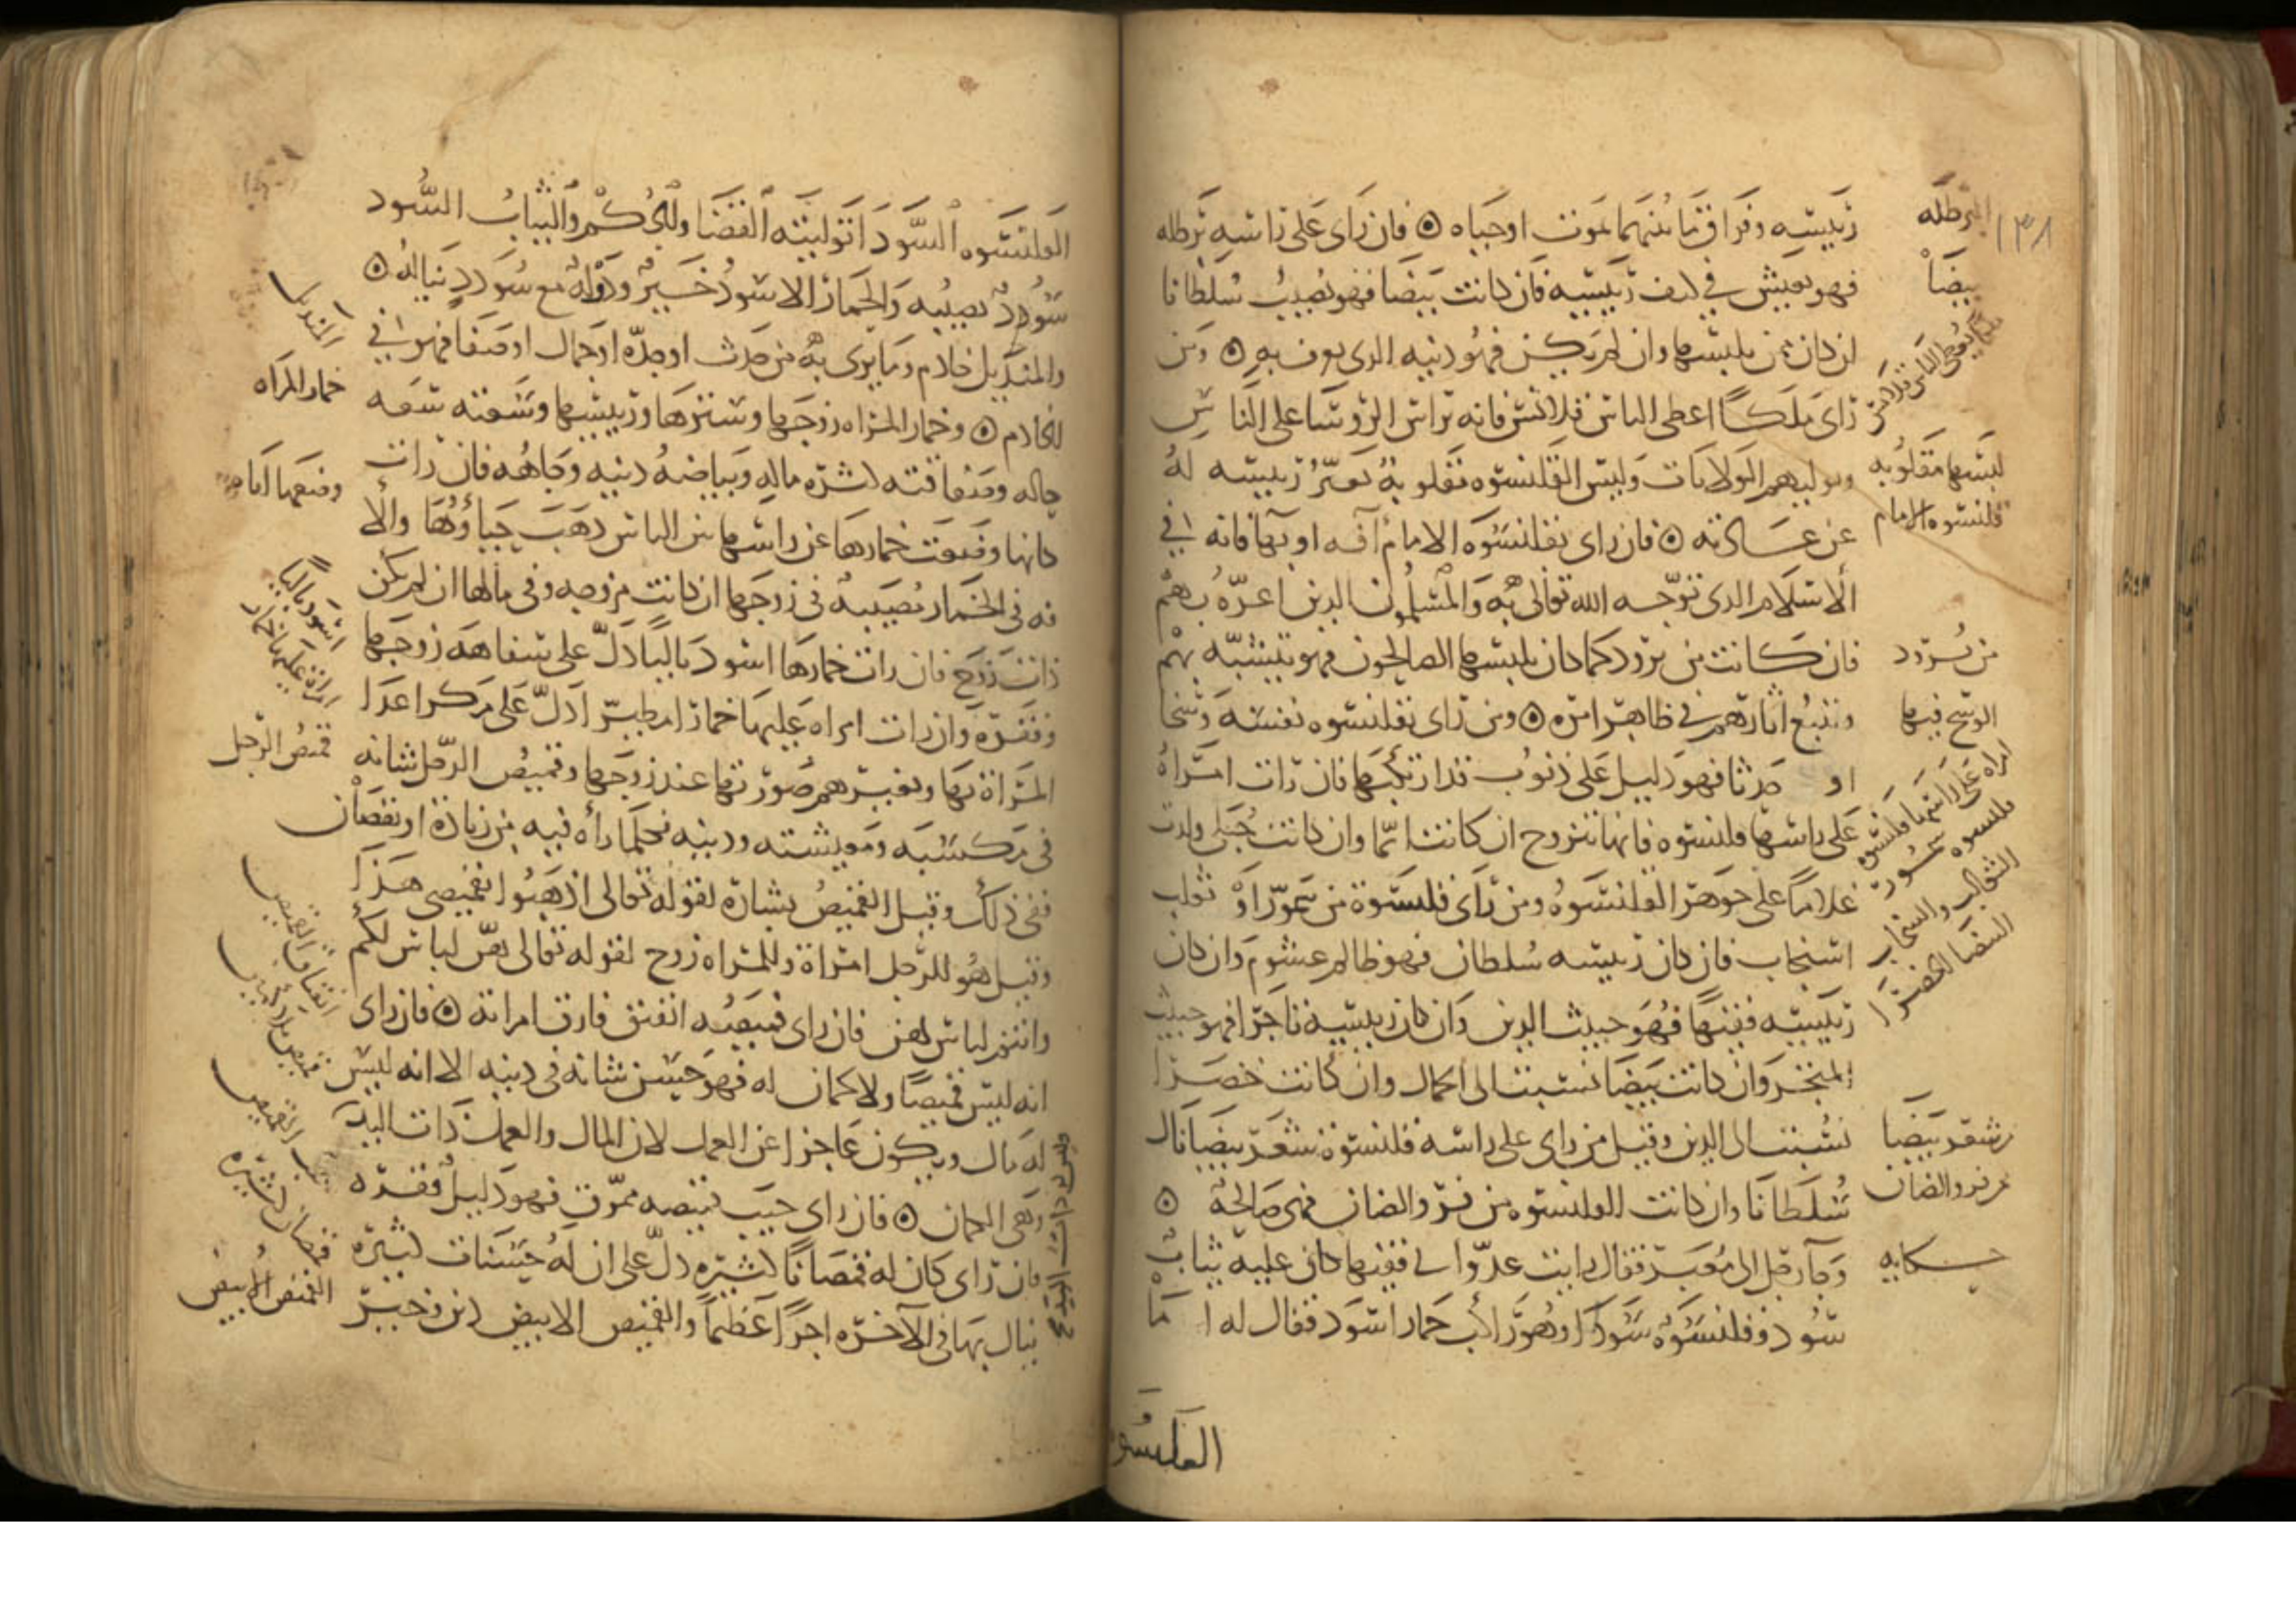 رئيسه وفراق ما بينهما بموت او حياه ۞ فان راى على راسه برطله
فهو يعيش في كنف رئيسه فان كانت بيضا فهو يصيب سلطانا
ان كان ممن يلبسها وان لم يكن فهو دينه الذى يعرف به ۞ ومن
راى ملكا اعطى الناس قلانس فانه يراس الروسا على الناس
ويوليهم الولايات ولبس القلنسوه مقلوبة تغير رئيسه له
عن عادته ۞ فان راى بقلنسوه الامام آفه او بها فانه في
الاسلام الذى توجه الله تعالى به والمسلمون الذين اعزه بهم
فان كانت من برود كما كان يلبسها الصالحون فهو يتشبه بهم
ويتبع اثارهم في ظاهر امره ۞ ومن راى بقلنسوه نفسه وسخا
او حدثا فهو دليل على ذنوب قد ارتكبها فان رات امراة
على راسها قلنسوه فانها تتزوج ان كانت ايما وان كانت حبلى ولدت
غلاما على جوهر القلنسوه ومن راى قلنسوة من سمور او ثعلب
او سنجاب فان كان رئيسه سلطان فهو ظالم غشوم وان كان
رئيسه فقيها فهو خبيث الدين وان كان رئيسه تاجرا فهو خبيث
المتجر وان كانت بيضا نسبت الى الجمال وان كانت خضرا
نسبت الى الدين وقيل من راى على راسه قلنسوة من شعر بيضا نال
سلطانا وان كانت القلنسوه من فرو الضان فهى صالحة ۞
وجا رجل الى معبر فقال رايت عدوا لي فقيها كان عليه ثياب
سود وقلنسوة سودا وهو راكب حمار اسود فقال له اما
القلنسوه
١٣٨
البرطله
بيضا
ملك يعطى الناس قلانس
لبسها مقلوبه
قلنسوه الامام
من برود
الوسخ فيها
امراه على راسها قلنسوه
قلنسوه سمور
الثعالب والسنجاب
البيضا الخضرا
من شعر بيضا
فرو الضان
حكايه
القلنسوه السودا توليته القضا والحكم والثياب السود
سودد يصيبه والحمار الاسود خير ودولة مع سودد يناله ۞
والمنديل خادم وما يرى به من حدث او جدة او جمال او صفا فهو في
الخادم ۞ وخمار المراه زوجها وسترها ورئيسها وسعته سعه
حاله وصفاقته كثره ماله وبياضه دينه وجاهه فان رات
كانها وضعت خمارها عن راسها بين الناس ذهب حياؤها والا
فه في الخمار مصيبة في زوجها ان كانت مزوجه وفي مالها ان لم تكن
ذات زوج فان رات خمارها اسود باليا دل على سفاهه زوجها
وفقره وان رات امراه عليها خمارا مطيرا دل على مكر اعدا
المراة بها وتغييرهم صورتها عند زوجها وقميص الرجل شانه
في مكسبه ومعيشته ودينه فكلما راه فيه من زياده او نقصان
ففى ذلك وقيل القميص بشارة لقوله تعالى اذهبوا بقميصى هذا
وقيل هو للرجل امراة وللمراه زوج لقوله تعالى هن لباس لكم
وانتم لباس لهن فان راى قميصه انفتق فارق امراته ۞ فان راى
انه لبس قميصا ولا كمان له فهو حسن شانه فى دينه الا انه ليس
له مال ويكون عاجزا عن العمل لان المال والعمل ذات اليد
وهى الكمان ۞ فان راى جيب قميصه ممزق فهو دليل فقره
فان راى كان له قمصانا كثيره دل على ان له حسنات كثيره
ينال بها في الآخره اجرا عظيما والقميص الابيض دين وخير
المنديل
خمار المراه
وضعها امام
اسود باليا
امراة عليها خمار
قميص الرجل
انفتاق القميص
قميص بلا اكمام
جيب القميص
قمصان كثيره
القميص الابيض